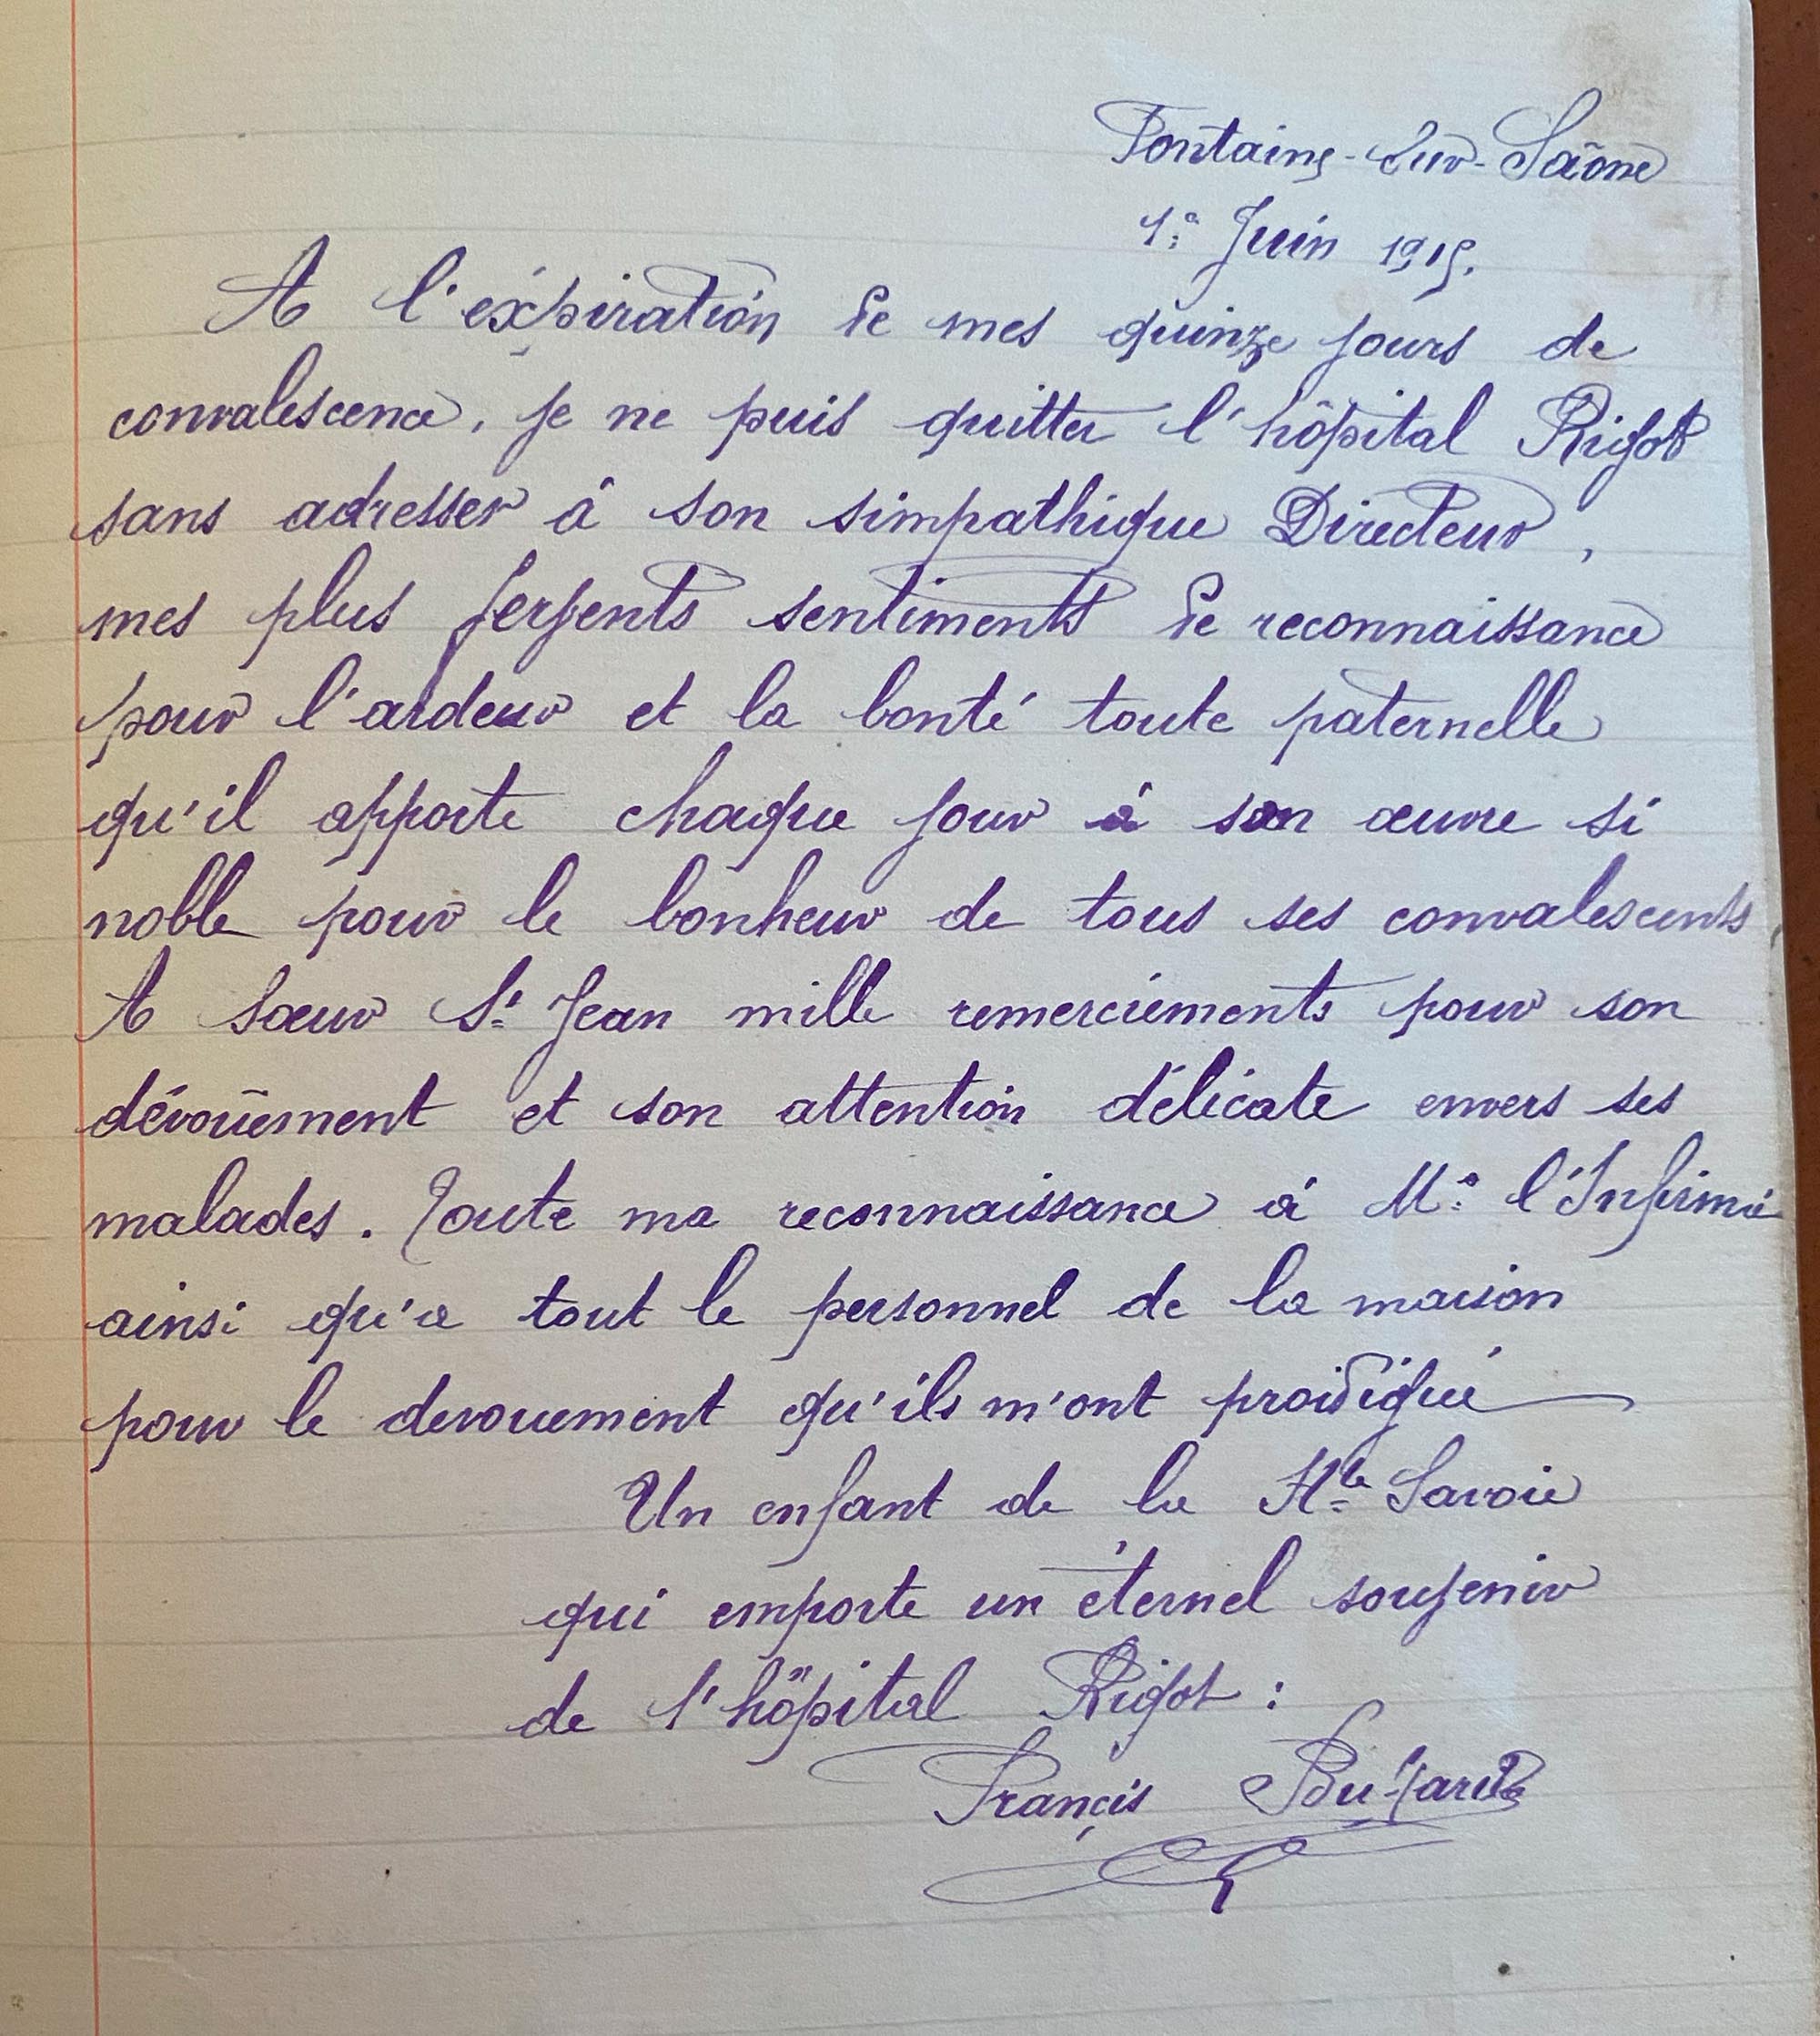 Fontaine-Sur-Saône
1er Juin 1915.
A l'éxpiration de mes quinze jours de
convalescence, je ne puis quitter l'hôpital Rigot
sans adresser à son simpathique Directeur,
mes plus fervents sentiments de reconnaissance
pour l'ardeur et la bonté toute paternelle
qu'il apporte chaque jour à son œuvre si
noble pour le bonheur de tous ses convalescents,
A Sœur St Jean mille remerciements pour son
dévoûement et son attention délicate envers ses
malades. Toute ma reconnaissance à Mr l'Infirmié
ainsi qu'a tout le personnel de la maison
pour le devouement qu'ils m'ont proidigué
Un enfant de la Hte Savoie
qui emporte un éternel souvenir
de l'hôpital Rigot :
Françis